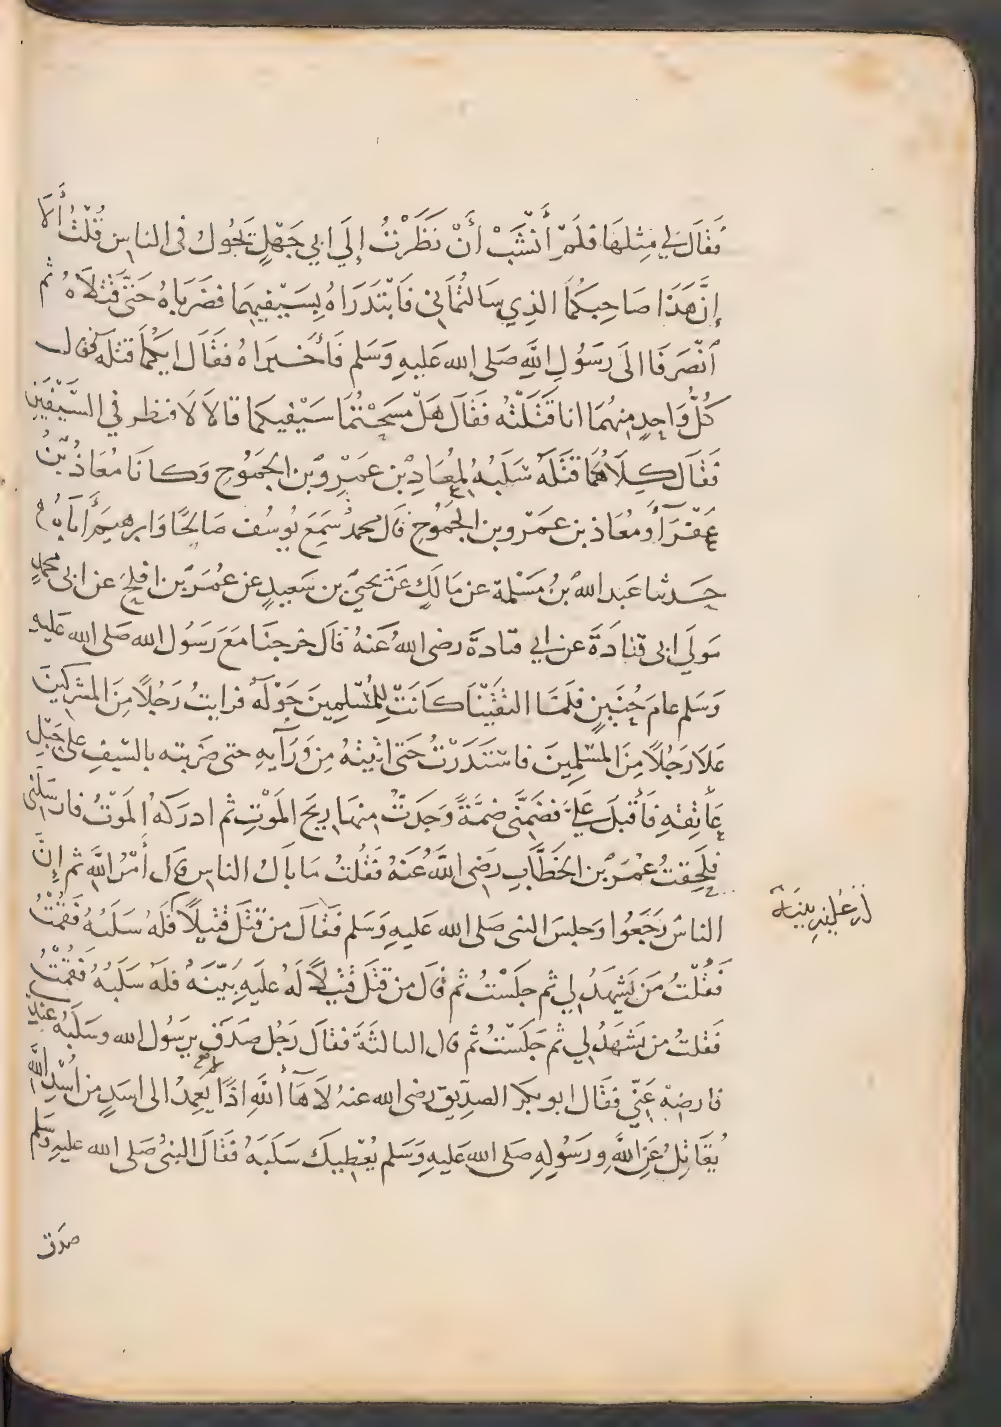 فَقَالَ لِي مِثلَهَا فَلَمْ أَنْشَبْ أَنْ نَظَرْتُ إِلَى ابي جَهْلٍ يَجُولُ فى الناسِ قُلْتُ أَلَا
إِنَّ هَذَا صَاحِبكُمَا الذِي سَالتُمَانِي فَابْتَدَرَاهُ بِسَيْفَيهِمَا فضَرَبَاهُ حَتَّى قَتَلاَهُ ثم
انْصَرَفَا الَى رَسُولِ اللهِ صَلى الله عَليهِ وَسَلم فَأَخبَرَاهُ فقَالَ ايكُمَا قتلَهُ قال
كُلُّ وَاحِدٍ مِنهُمَا انا قَتَلْتُه فَقَالَ هَلْ مَسَحْتُمَا سَيْفيكمَا قالاَ لَا فنظر فِي السَّيْفَينِ
فَقالَ كِلَاهُمَا قَتَلَهُ سَلَبُهُ لِمُعَاذِ بْن عَمْرِو بْن الجَمُوحِ وَكانَا مُعَاذُ بْنُ
عَفْرَآءَ وَمُعَاذ بن عمَرْو بن الجَمُوحِ قَالَ محمدٌ سَمِعَ يُوسُف صَالِحًا وَابرهِيمَ أَبَاهُ
حَدثنا عَبد اللهِ بنُ مَسْلمَة عن مَالكٍ عَنْ يحيَى بن سَعِيدٍ عن عُمَرَ بن افلَحَ عن ابى محمدٍ
مَولَى ابى قتادَةَ عن ابي قتادةَ رضى الله عَنهُ قالَ خرجنَا مَعَ رَسُول الله صَلى الله عَليهِ
وَسَلم عامَ حُنَينٍ فلَمَّا التقَيْنَا كَانَتْ لِلمُسْلِمِينَ جَوْلَةٌ فرايتُ رَجُلاً مِنَ المشركِينَ
عَلَا رَجُلًا مِنَ المسْلِمِينَ فاسْتَدَرْتُ حَتى اتيتُهُ مِن وَرَآيهِ حتى ضرَبته بالسَّيفِ على حَبْلِ
عَاتِقهِ فَأَقبَلَ عَليَّ فضَمَّنِى ضمَّةً وَجَدتُ مِنهَا رِيحَ المَوتِ ثم ادرَكهُ المَوْتُ فارسَلَنى
فلَحِقتُ عُمَرَ بْن الخَطَّابِ رَضِى اللهُ عَنهُ فَقُلتُ مَا بَالُ الناسِ قال أمْرُ اللهِ ثم إِنَّ
الناسَ رَجَعُوا وَجلسَ النبى صَلى الله عَليهِ وَسَلم فَقَالَ مَن قتَلَ قتِيلًا فَلَهُ سَلَبُهُ فَقُمْتُ
لَهُ عَليهِ بَينةٌ
فَقُلتُ مَن يَشهَدُ لِي ثم جلَسْتُ ثم قالَ من قتَلَ قتيلًا لَهُ عليَهِ بَيّنَةٌ فلَهُ سَلَبُهُ فَقُمْتُ
فَقلتُ من يَشهَدُ لِي ثم جَلَسْتُ ثم قال الثالثَةَ فقَالَ رَجُل صَدَقَ يرَسُول الله وسَلَبُهُ عِندِي
فارضِهِ عَنِّي فقَال ابو بكر الصدِّيق رضى الله عنهُ لَا هَا اللهِ اذًا يَعمِدُ الى اسَدٍ من أسْدِ الله
يُقَاتِلُ عَنِ اللهِ وَرَسُولِهِ صَلى الله عَليهِ وَسَلم يُعْطِيكَ سَلَبَهُ فَقَالَ النبىُّ صَلى الله عليهِ وَسَلم
صدق